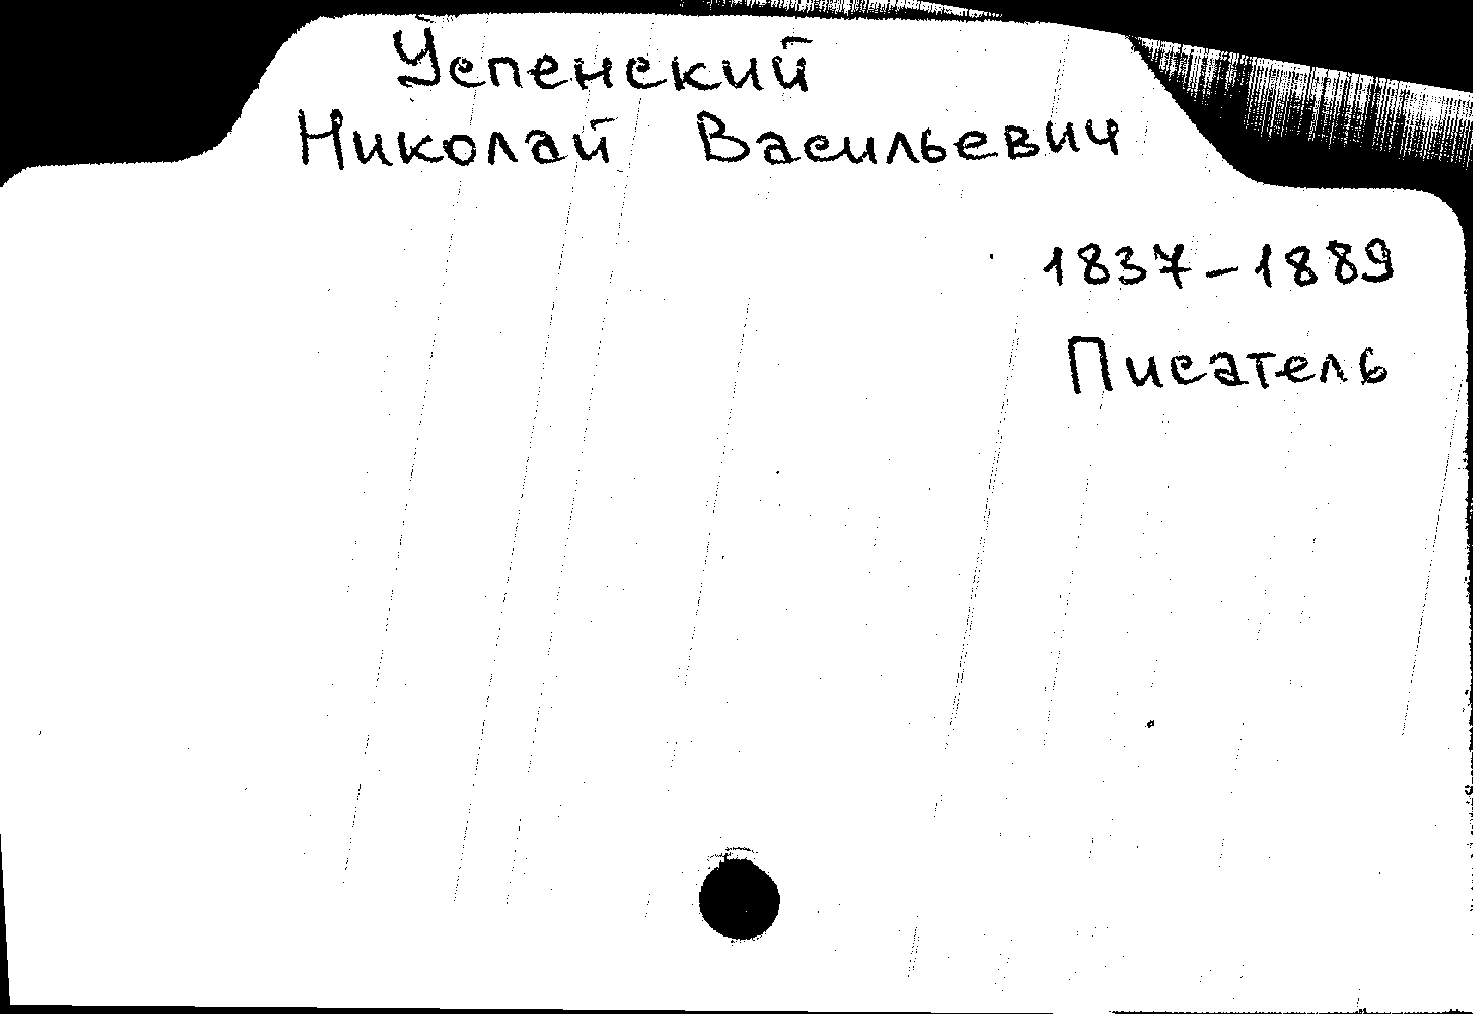 Успенский
Николай Васильевич
1837-1889
Писатель